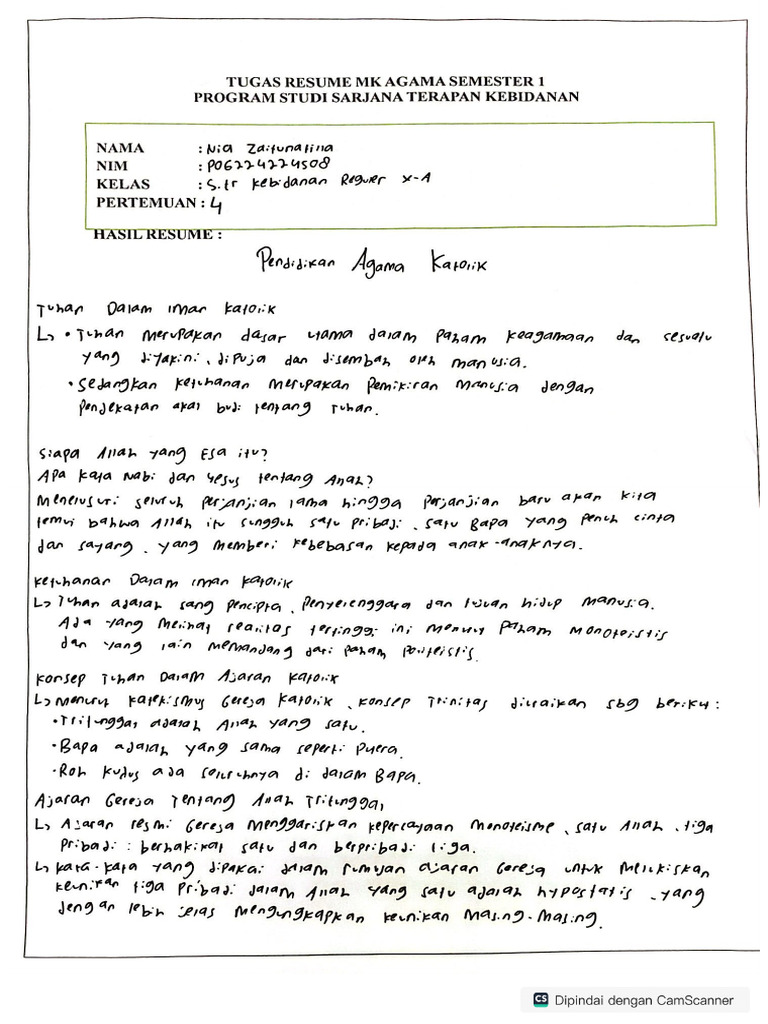 TUGAS RESUME MK AGAMA SEMESTER 1
PROGRAM STUDI SARJANA TERAPAN KEBIDANAN
NAMA : Nia Zaitunalina
NIM : P06224224508
KELAS : S.tr Kebidanan Reguer X-A
PERTEMUAN : 4
HASIL RESUME :
Pendidikan Agama Katolik
Tuhan Dalam iman Katolik
↳ • Tuhan merupakan dasar utama dalam paham keagamaan dan sesuatu
yang diyakini, dipuja dan disembah oleh manusia.
• Sedangkan ketuhanan merupakan pemikiran manusia dengan
pendekatan akal budi tentang Tuhan.
Siapa Allah yang Esa itu?
Apa kata Nabi dan Yesus tentang Allah?
Menelusuri seluruh perjanjian lama hingga perjanjian baru akan kita
temui bahwa Allah itu sungguh satu pribadi, satu Bapa yang penuh cinta
dan sayang, yang memberi kebebasan kepada anak-anaknya.
Ketuhanan Dalam iman Katolik
↳ Tuhan adalah sang pencipta, Penyelenggara dan tujuan hidup manusia.
Ada yang melihat realitas tertinggi ini menurut paham monoteistis
dan yang lain memandang dari paham politeistis.
Konsep Tuhan Dalam Ajaran Katolik
↳ Menurut Katekismus Gereja Katolik, konsep Trinitas diuraikan sbg berikut :
• Tritunggal adalah Allah yang satu.
• Bapa adalah yang sama seperti Putra.
• Roh Kudus ada seluruhnya di dalam Bapa.
Ajaran Gereja Tentang Allah Tritunggal
↳ Ajaran resmi Gereja menggariskan kepercayaan monoteisme, satu Allah, tiga
Pribadi : berhakikat satu dan berpribadi tiga.
↳ Kata-kata yang dipakai dalam rumusan ajaran Gereja untuk melukiskan
keunikan tiga pribadi dalam Allah yang satu adalah hypostatis, yang
dengan lebih jelas mengungkapkan keunikan masing-masing.
CS Dipindai dengan CamScanner